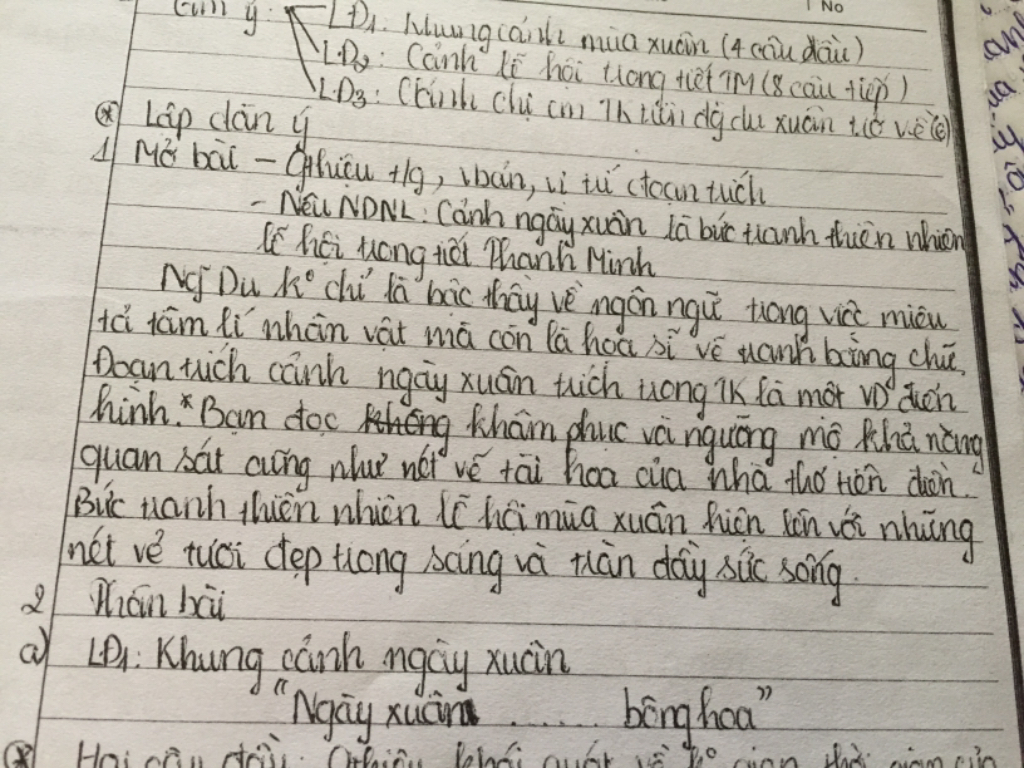 No
tìm ý: LĐ1: Khung cảnh mùa xuân (4 câu đầu)
LĐ2: Cảnh lễ hội trong tiết TM (8 câu tiếp)
LĐ3: Cảnh chị em TK du xuân trở về (6)
* Lập dàn ý
1 Mở bài - Gthiệu t/g, vbản, vị trí đoạn trích
- Nêu NDNL: Cảnh ngày xuân là bức tranh thiên nhiên
lễ hội trong tiết Thanh Minh
Ng~ Du k° chỉ là bậc thầy về ngôn ngữ trong việc miêu
tả tâm lí nhân vật mà còn là họa sĩ vẽ tranh bằng chữ.
Đoạn trích cảnh ngày xuân trích trong TK là một VD điển
hình.* Bạn đọc không khâm phục và ngưỡng mộ khả năng
quan sát cũng như nét vẽ tài hoa của nhà thơ tiên điền.
Bức tranh thiên nhiên lễ hội mùa xuân hiện lên với những
nét vẻ tươi đẹp trong sáng và tràn đầy sức sống.
2 Thân bài
a) LĐ1: Khung cảnh ngày xuân
"Ngày xuân ...... bông hoa"
* Hai câu đầu: Gthiệu khái quát về k° gian thời gian của